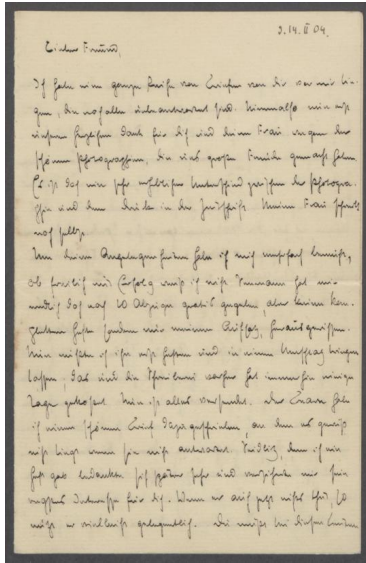 D. 14. II 04.
Lieber Freund,
Ich habe eine ganze Reihe von Briefen von dir vor mir lie-
gen, die noch alle unbeantwortet sind. Nimm also nun erst
meinen herzlichen Dank für dich und deine Frau wegen der
schönen Photographien, die uns große Freude gemacht haben.
Es ist doch ein sehr Unterschied zwischen der Photogra-
phie und dem Druck in der Zeitschrift. Meine Frau schreibt
noch selbst.
Um deine Angelegenheiten habe ich mich bemüht,
ob freilich mit Erfolg weiß ich nicht. hat mir
doch noch 20 Abzüge gratis gegeben, aber keine kom-
pletten Hefte sondern nur meinen Aufsatz, herausgerissen.
Nun mußte ich ihn erst heften und in einen Umschlag bringen
lassen, das und die Schreiberei vorher hat immerhin einige
Tage gekostet. Nun ist alles versendet. habe
ich einen schönen Brief dazugeschrieben, an dem es gewiß
nicht liegt wenn sie nicht antwortet. dem ich ein
Heft gab bedankte sich sehr und versicherte mir sein
Interesse für dich. Wenn er auch jetzt nichts thut, so
nützt er vielleicht gelegentlich. Du mußt bei diesen